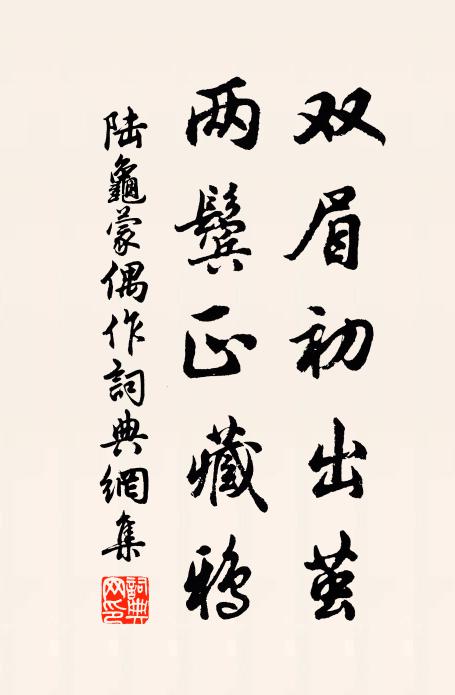 双眉初出茧
两鬓正藏鸦
陆龜蒙偶作詞典網集
詞典网印